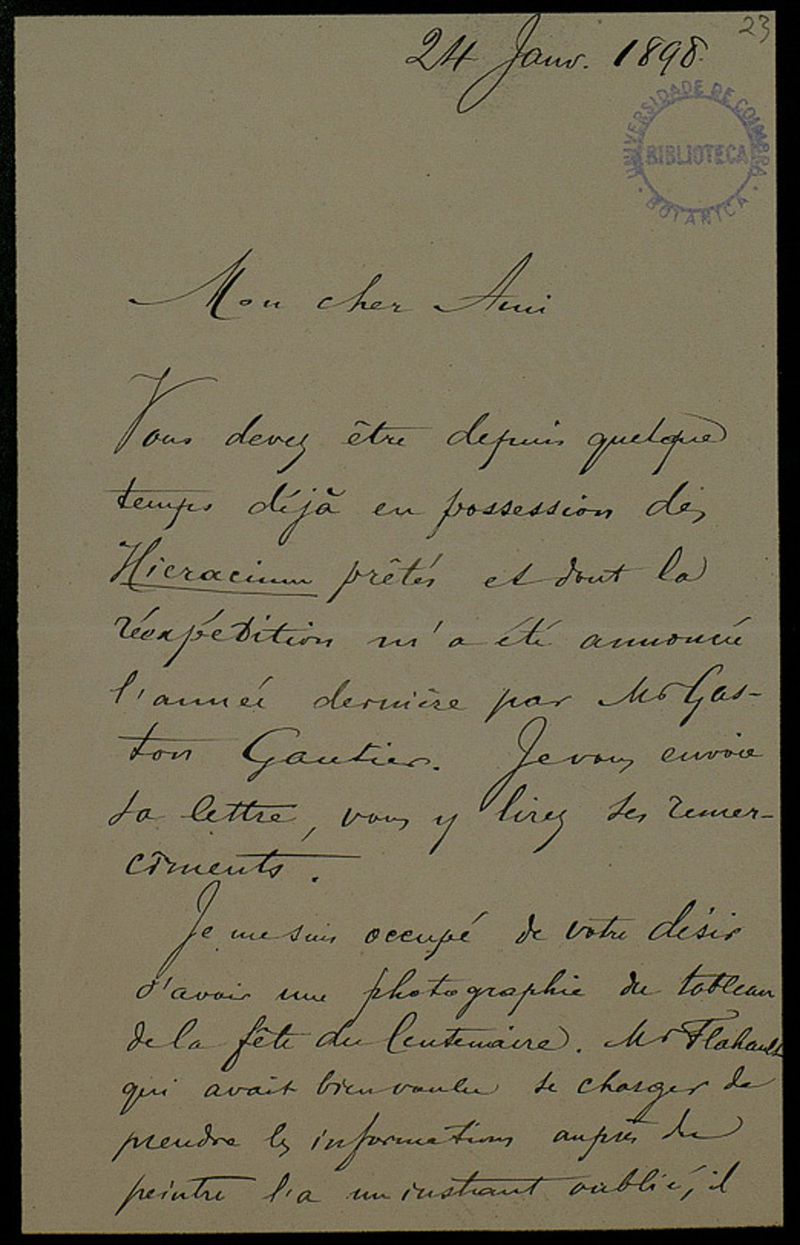 23
24 Janv. 1898.
UNIVERSIDADE DE COIMBRA
BIBLIOTECA
BOTANICA
Mon cher Ami
Vous devez être depuis quelque
temps déjà en possession des
Hieracium prêtés et dont la
réexpédition m'a été annoncée
l'année dernière par Mr Gas-
ton Gautier. Je vous envoie
sa lettre, vous y lirez ses remer-
cîments.
Je me suis occupé de votre désir
d'avoir une photographie du tableau
de la fête du Centenaire. Mr Flahault
qui avait bien voulu se charger de
prendre les informations auprès du
peintre l'a un instant oublié, il